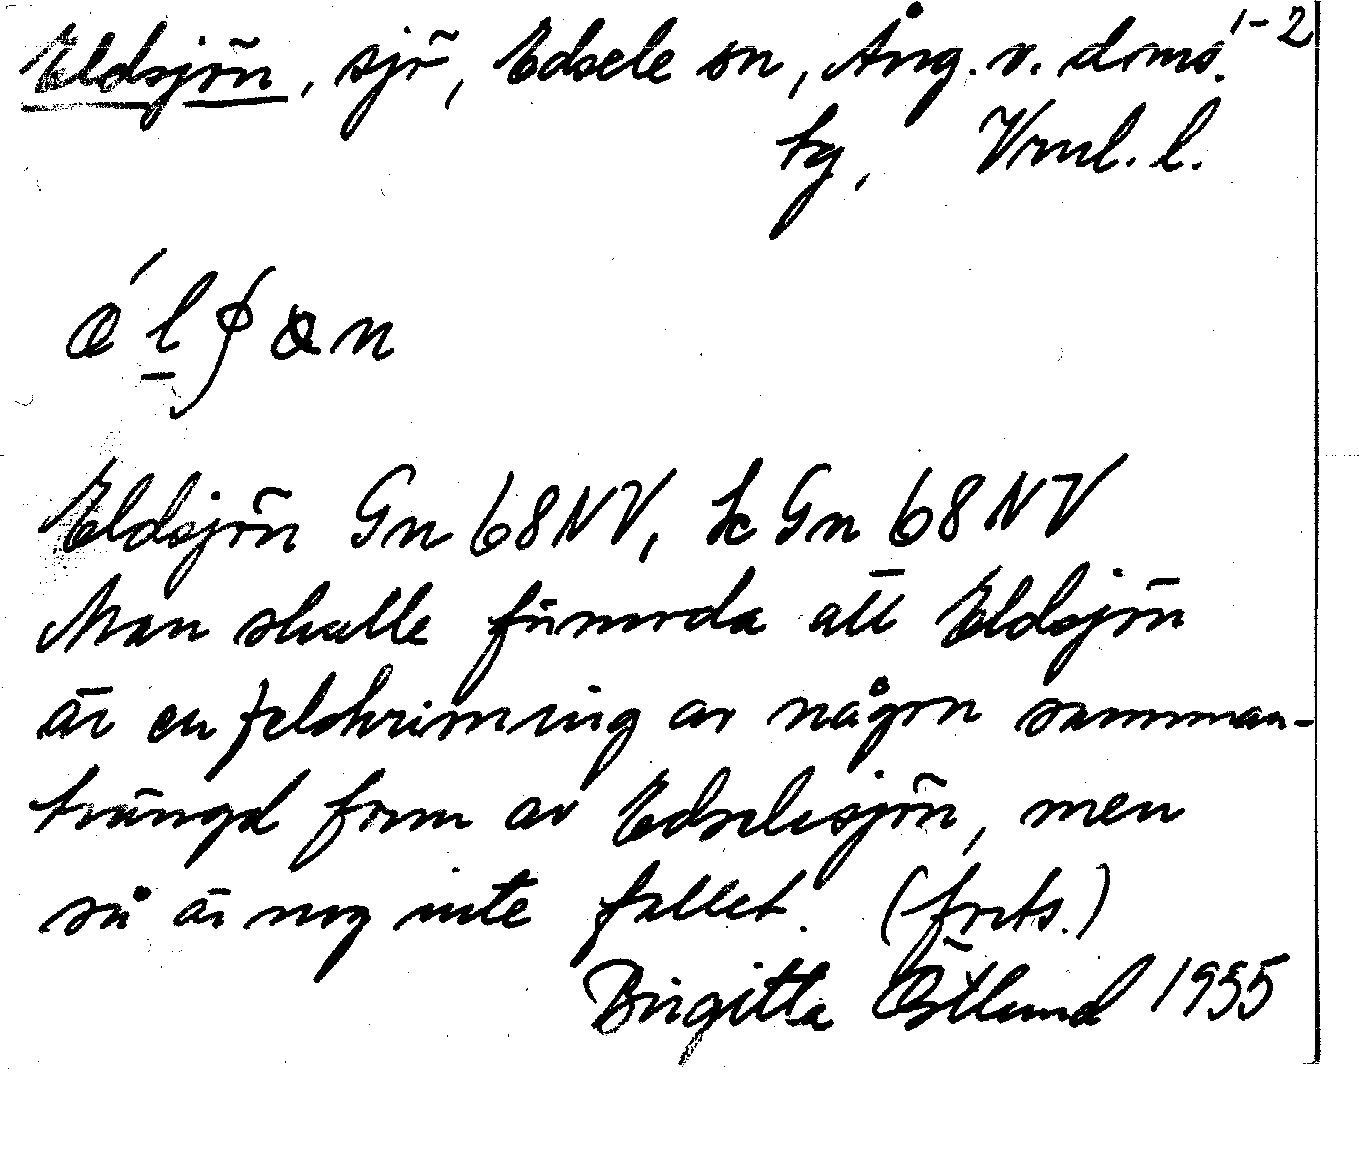 1-2
Eldsjön, sjö, Edsele sn, Ång. v. doms.
tg, Vrnl. l.
Eldsjön Gn 68NV, Ec Gn 68NV
Man skulle förmoda att Eldsjön
är en felskrivning av någon samman-
trängd form av Edselesjön, men
så är nog inte fallet. (forts.)
Birgitta Östlund 1955